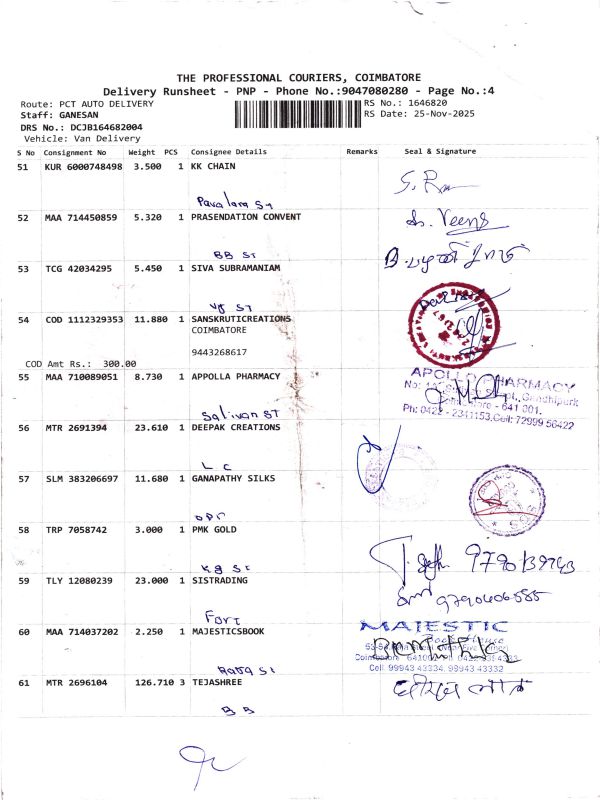 THE PROFESSIONAL COURIERS, COIMBATORE
Delivery Runsheet - PNP - Phone No.:9047080280 - Page No.:4
Route: PCT AUTO DELIVERY RS No.: 1646820
Staff: GANESAN RS Date: 25-Nov-2025
DRS No.: DCJB164682004
Vehicle: Van Delivery
S No Consignment No Weight PCS Consignee Details Remarks Seal & Signature
51 KUR 6000748498 3.500 1 KK CHAIN
Pavalam St
52 MAA 714450859 5.320 1 PRASENDATION CONVENT
BB St
53 TCG 42034295 5.450 1 SIVA SUBRAMANIAM
VG ST
54 COD 1112329353 11.880 1 SANSKRUTICREATIONS
COIMBATORE
9443268617
COD Amt Rs.: 300.00
55 MAA 710089051 8.730 1 APPOLLA PHARMACY
APOLLO PHARMACY
Gandhipark
641 001.
Ph: 0422 - 2341153, Cell: 72999 56422
Salivan ST
56 MTR 2691394 23.610 1 DEEPAK CREATIONS
L C
57 SLM 383206697 11.680 1 GANAPATHY SILKS
OPP
58 TRP 7058742 3.000 1 PMK GOLD
KG St
59 TLY 12080239 23.000 1 SISTRADING
9790406585
Fort
60 MAA 714037202 2.250 1 MAJESTICSBOOK
MAJESTIC
Book House
Cell: 99943 43334, 99943 43332
Raja St
61 MTR 2696104 126.710 3 TEJASHREE
B B